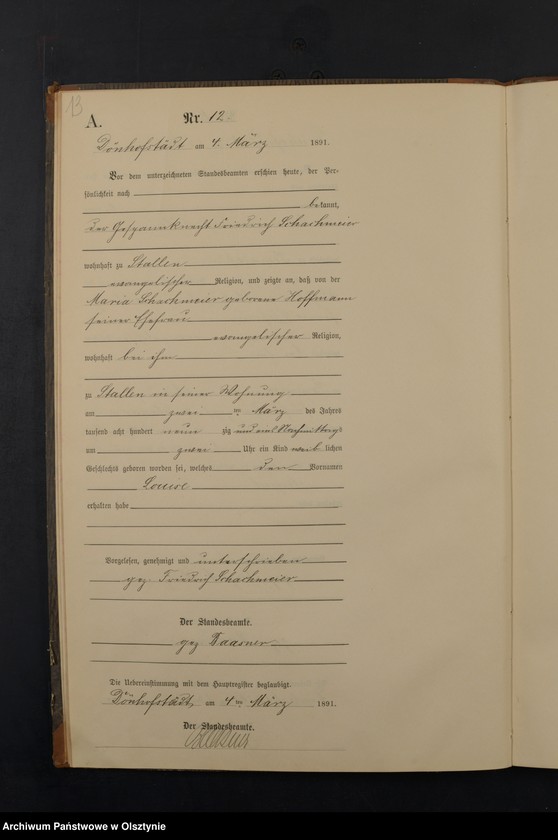 13
A.
Nr. 12
Dönhofstädt am 4. März 1891.
Vor dem unterzeichneten Standesbeamten erschien heute, der Per-
sönlichkeit nach
bekannt,
der Gespannknecht Friedrich Schachmeier
wohnhaft zu Stallen
evangelischer Religion, und zeigte an, daß von der
Maria Schachmeier geborene Hoffmann
seiner Ehefrau
evangelischer Religion,
wohnhaft bei ihm
zu Stallen in seiner Wohnung
am zwei ten März des Jahres
tausend acht hundert neun zig und ein Nachmittags
um zwei Uhr ein Kind weib lichen
Geschlechts geboren worden sei, welches den Vornamen
Louise
erhalten habe
Vorgelesen, genehmigt und unterschrieben
gez. Friedrich Schachmeier
Der Standesbeamte.
gez
Die Uebereinstimmung mit dem Hauptregister beglaubigt.
Dönhofstädt, am 4ten März 1891.
Der Standesbeamte.
Archiwum Państwowe w Olsztynie